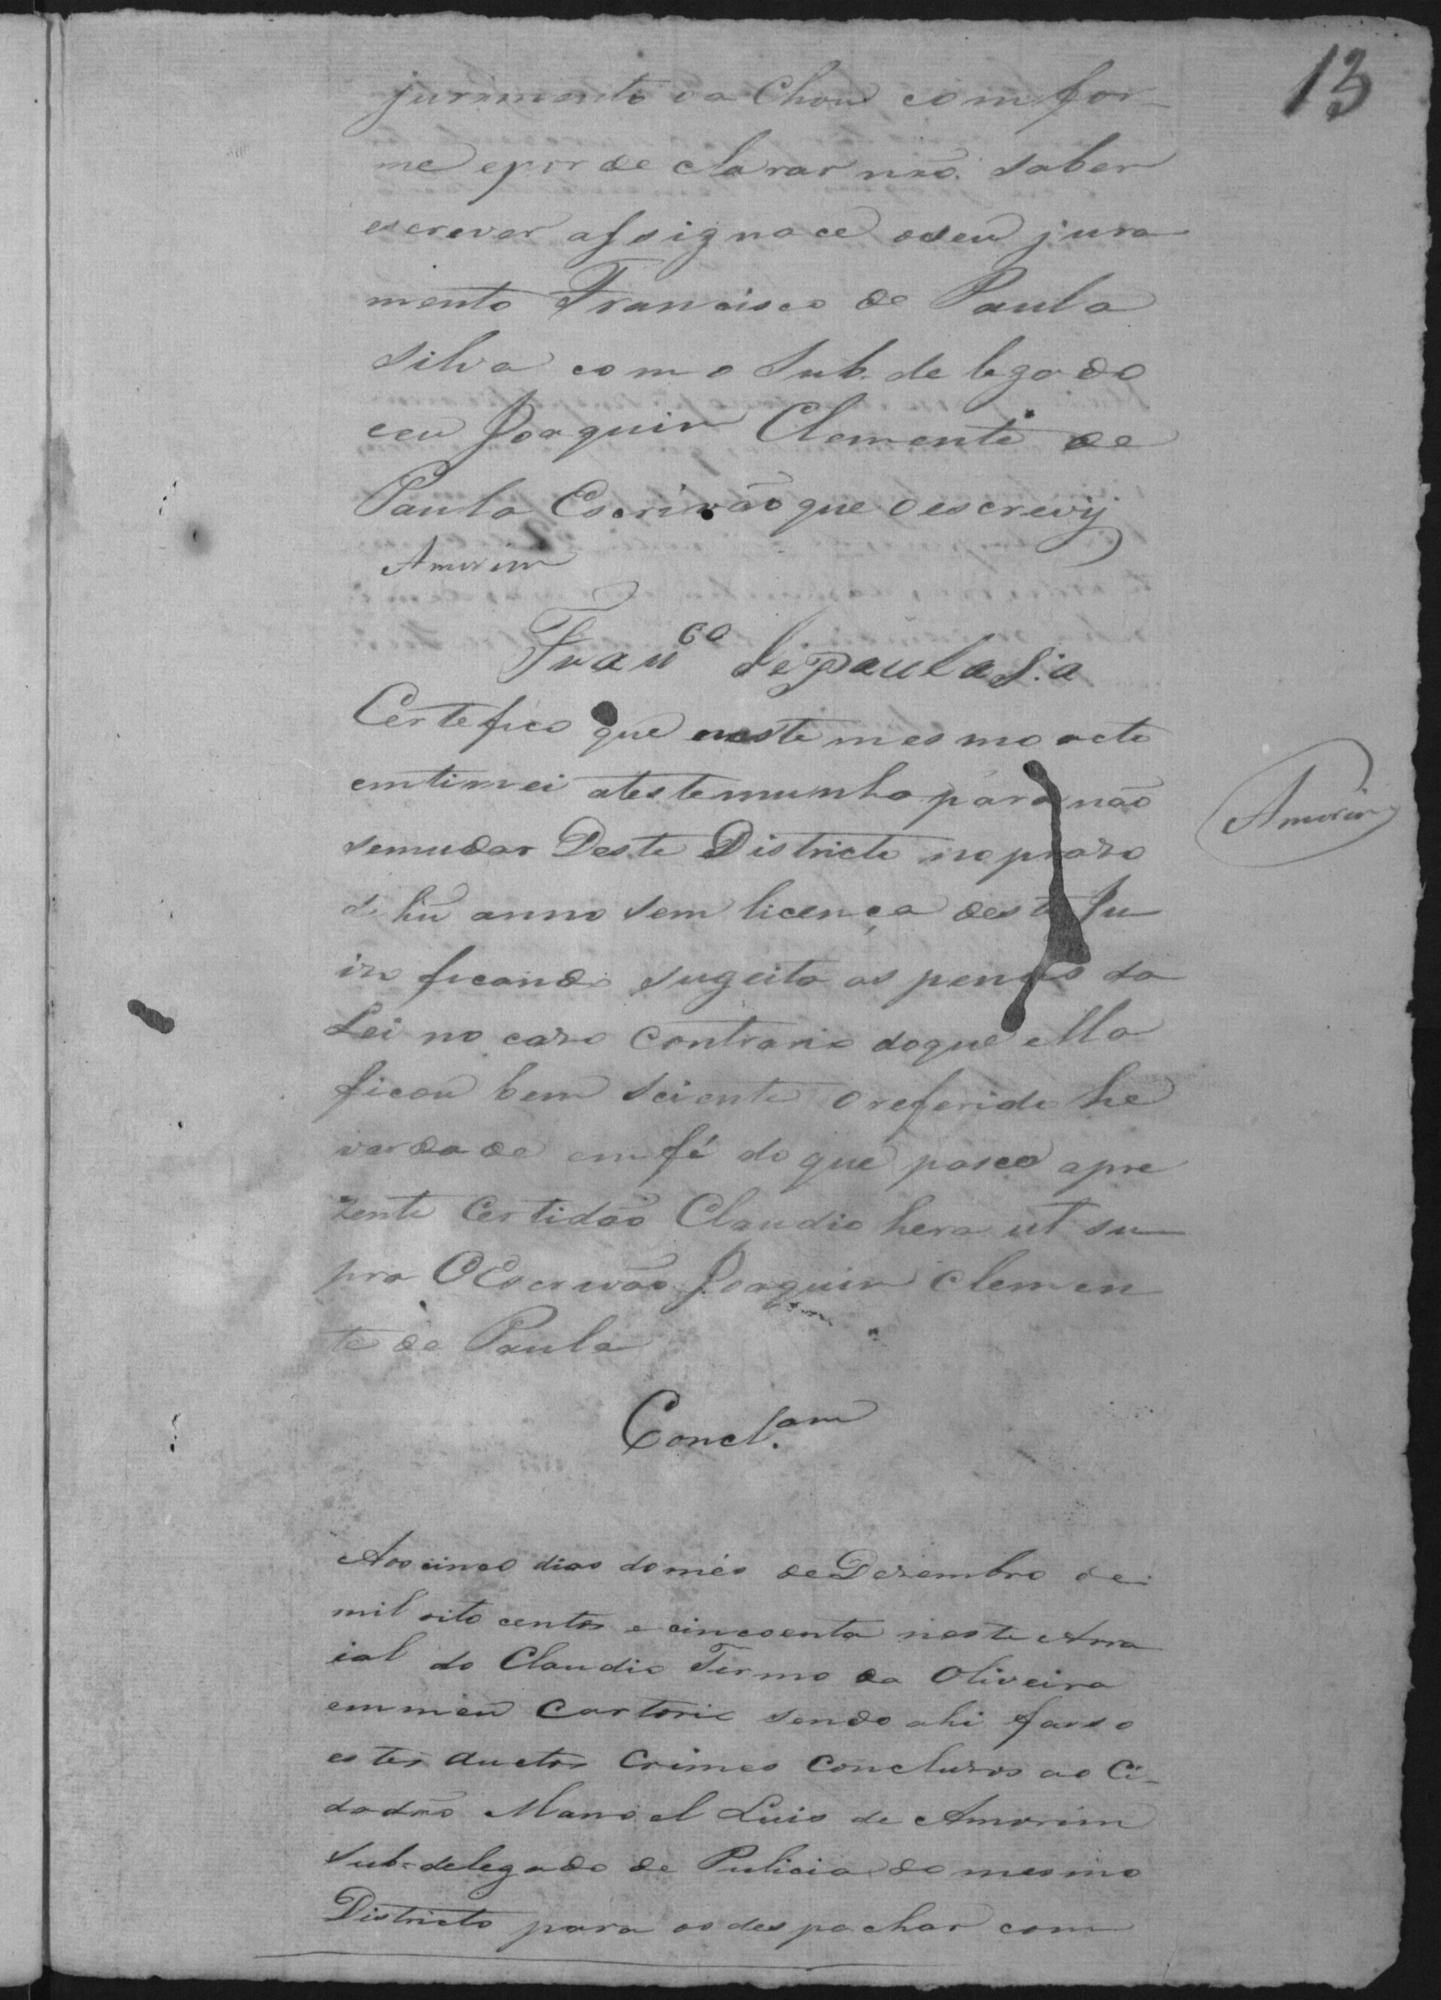 13
jurimento va Chou comfor-
me epor de clarar não saber
escrever assignace oseu jura
mento Francisco de Paula
Silva com o Sub. de legado
eeu Joaquim Clemente de
Paula Escrivão que o escrevij
Amorim
Fran.co de paula S.a
Certefico que neste mesmo acto
emtimei atestemunha para não
semudar Deste Districto no prazo
de hũ anno sem licença deste Ju
izo ficando sugeita as penas da
Lei no cazo Contrario doque ella
ficou bem Sciente oreferido he
verdade em fé do que paseo apre
zente Certidão Claudio hera ut su
pra O Escrivão Joaquim Clemen
te de Paula
Amorim
Concl.am
Aos cinco dias do mês de Dezembro de
mil oito centos e cincoenta neste Arra
ial do Claudio Termo da Oliveira
em meu Cartorio sendo ahi fasso
estes auctos Crimes Concluzos ao Ci-
dadão Manoel Luis de Amorim
Sub-delegado de Pulicia do mesmo
Districto para os despachar com